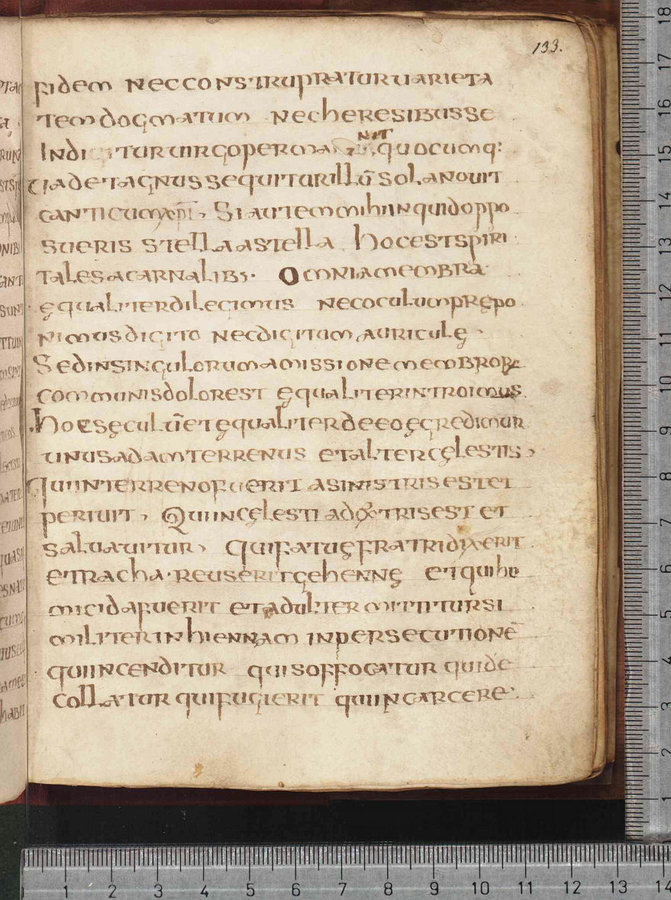 133.
fidem nec construpratur uarieta
tem dogmatum nec heresibus se
indi turuirgo perma nit quocumq:
uade tagnus sequitur illū sola nouit
canticum xpi, Si autem mihi inquid oppo
sueris stella astella hoc est spiri
tales acarnalib; Omnia membra
ęqualiter diligimus nec oculum prępo
nimus digito nec digitum auriculę
Sed in singulorum amissione membrorū
communis dolor est ęqualiter introimus
hoc sęculū et ęqualiter de eo egredimur
unus adam terrenus et alter cęlestis,
qui in terreno fuerit a sinistris est et
periuit, Qui in cęlesti ad dextris est et
saluauitur, qui fatuę fratri dixerit
et racha reus erit gehennę et qui ho
micida fuerit et adulter mittitur si
militer in hiennam in persecutionē
qui incenditur qui soffogatur qui de
collatur qui fugierit qui in carcere